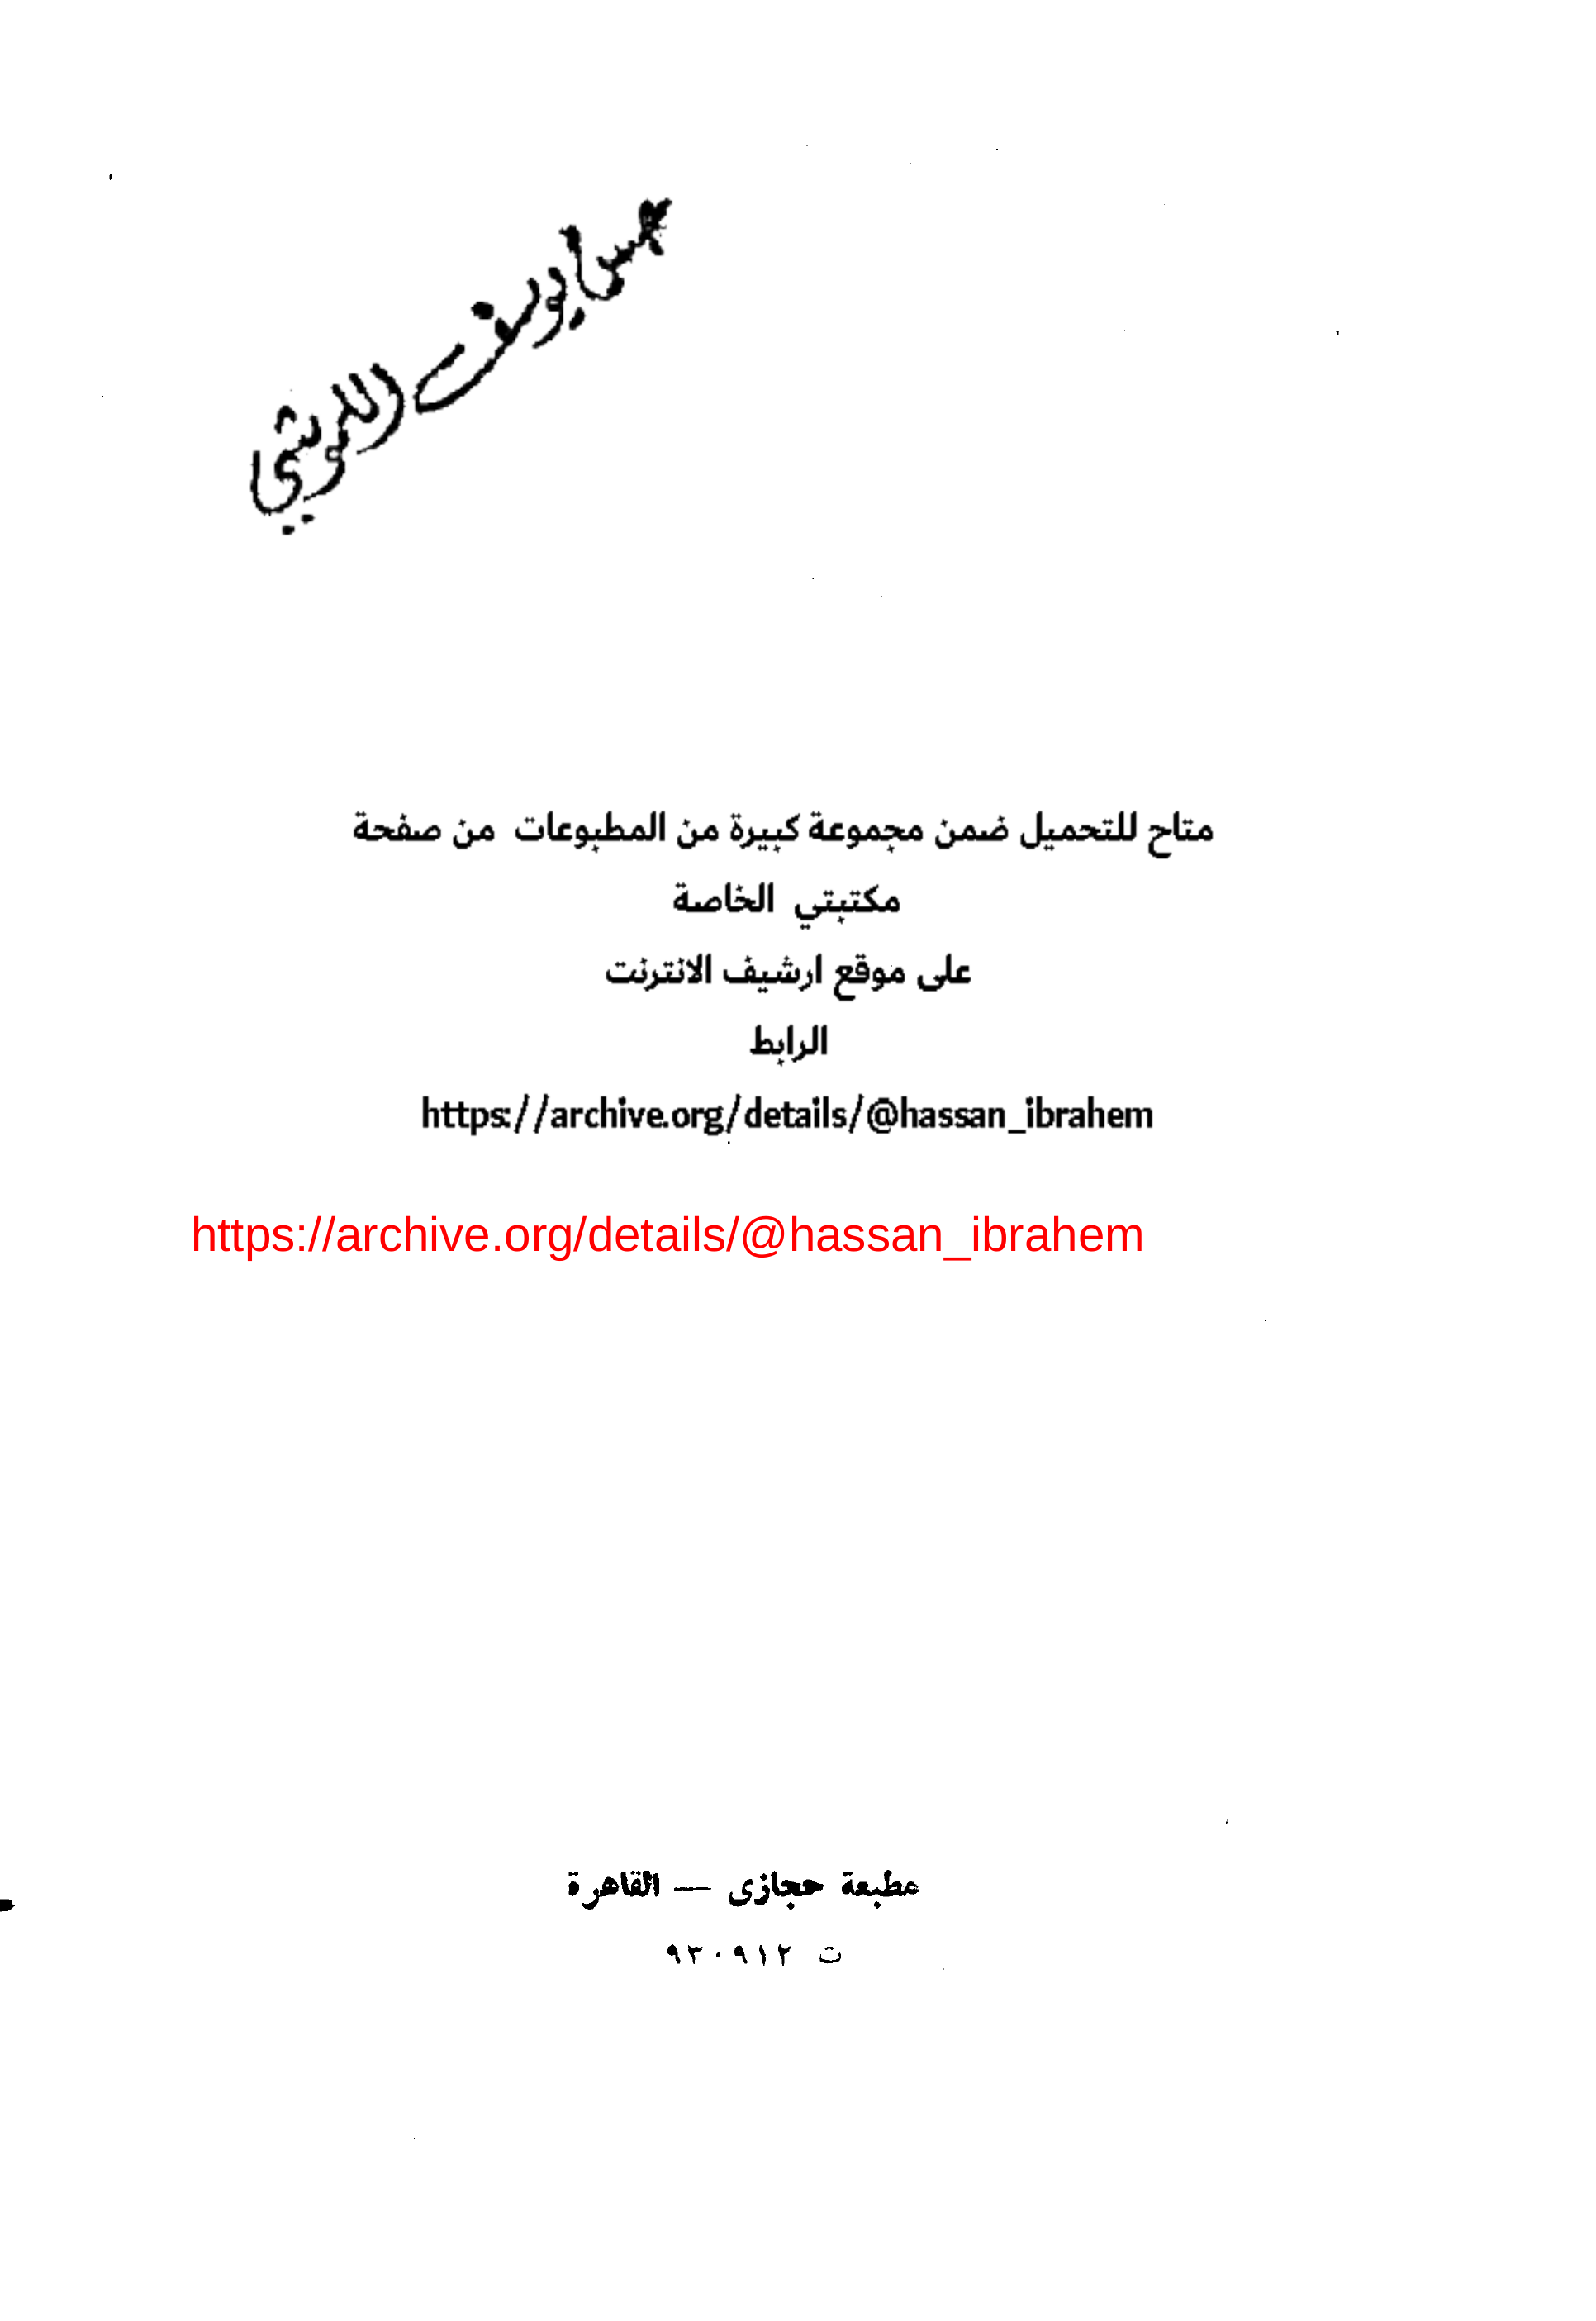 يوسف
متاح للتحميل ضمن مجموعة كبيرة من المطبوعات من صفحة
مكتبتي الخاصة
على موقع ارشيف الانترنت
الرابط
https://archive.org/details/@hassan_ibrahem
https://archive.org/details/@hassan_ibrahem
مطبعة حجازى — القاهرة
ت ٩٣٠٩١٢